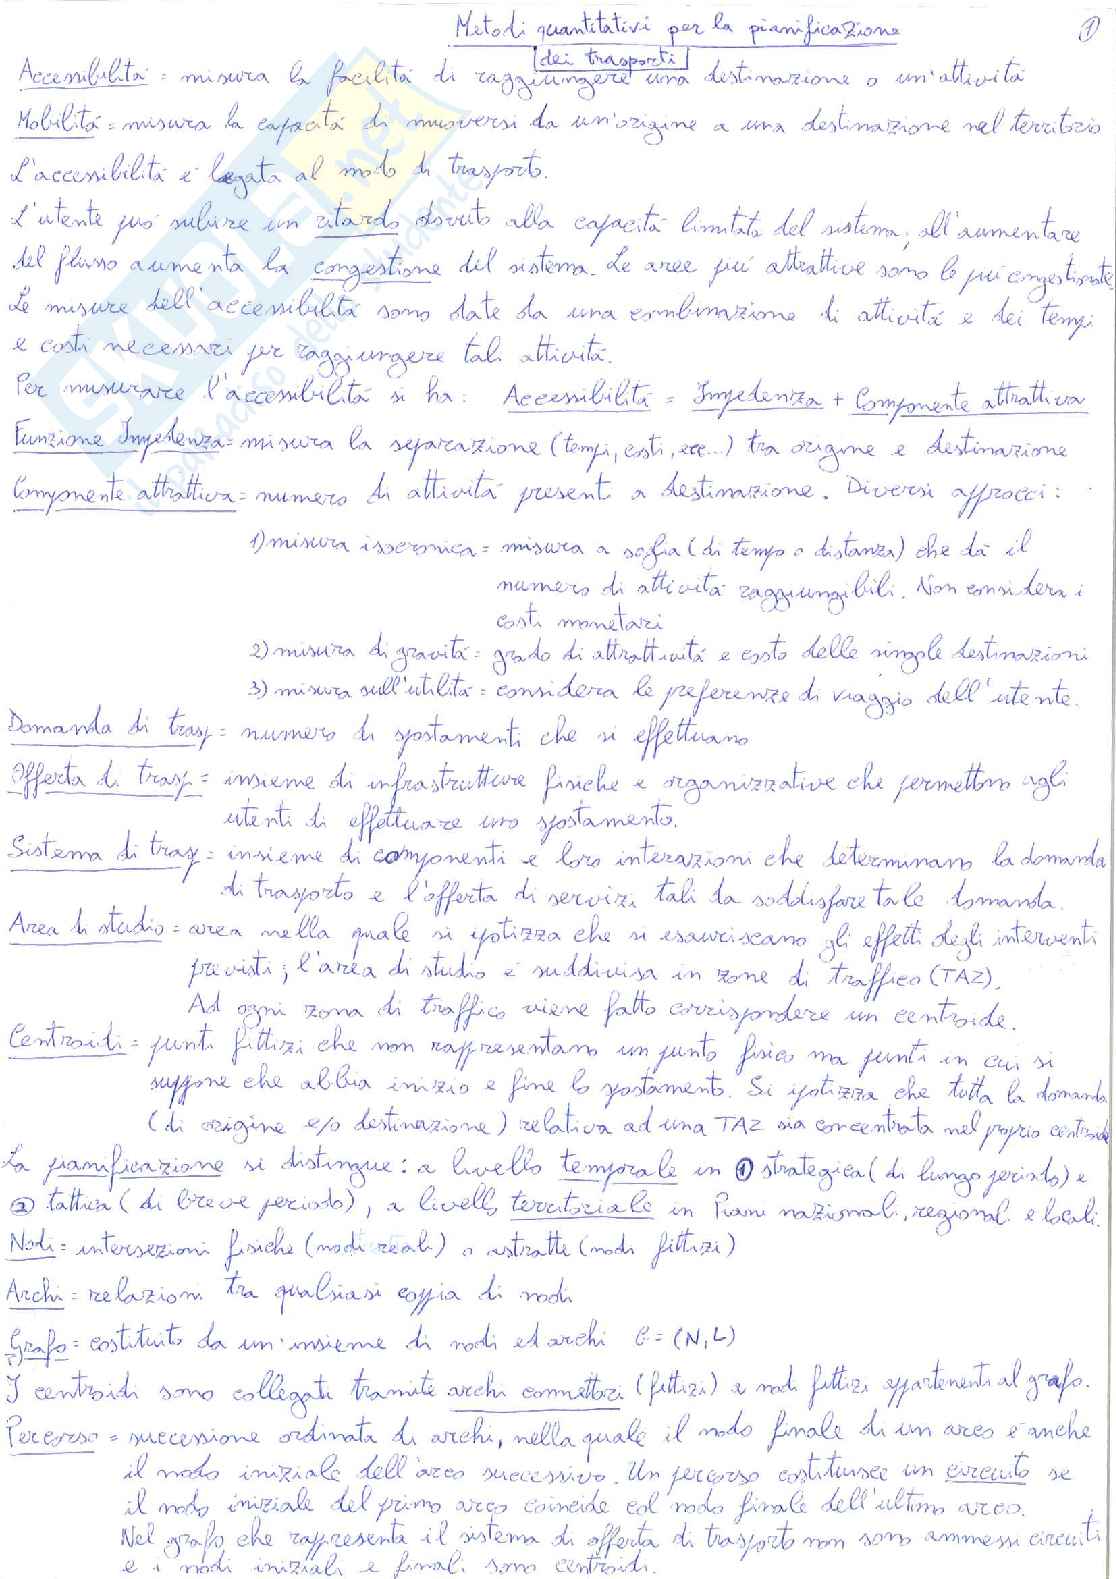 Metodi quantitativi per la pianificazione ①
dei trasporti
Accessibilitá = misura la facilitá di raggiungere una destinazione o un'attivitá
Mobilitá = misura la capacitá di muoversi da un'origine a una destinazione nel territorio
L'accessibilitá é legata al modo di trasporto.
L'utente puó subire un ritardo dovuto alla capacitá limitata del sistema, all'aumentare
del flusso aumenta la congestione del sistema. Le aree piú attrattive sono le piú congestionate.
Le misure dell'accessibilitá sono date da una combinazione di attivitá e dei tempi
e costi necessari per raggiungere tali attivitá.
Per misurare l'accessibilitá si ha: Accessibilitá = Impedenza + Componente attrattiva
Funzione Impedenza = misura la separazione (tempi, costi, ecc...) tra origine e destinazione
Componente attrattiva = numero di attivitá presenti a destinazione. Diversi approcci:
1) misura isocronica = misura a soglia (di tempo o distanza) che dá il
numero di attivitá raggiungibili. Non considera i
costi monetari
2) misura di gravitá = grado di attrattivitá e costo delle singole destinazioni
3) misura sull'utilitá = considera le preferenze di viaggio dell'utente.
Domanda di trasp = numero di spostamenti che si effettuano
Offerta di trasp. = insieme di infrastrutture fisiche e organizzative che permettono agli
utenti di effettuare uno spostamento.
Sistema di trasp = insieme di componenti e loro interazioni che determinano la domanda
di trasporto e l'offerta di servizi tali da soddisfare tale domanda.
Area di studio = area nella quale si ipotizza che si esauriscano gli effetti degli interventi
previsti; l'area di studio é suddivisa in zone di traffico (TAZ).
Ad ogni zona di traffico viene fatto corrispondere un centroide.
Centroidi = punti fittizi che non rappresentano un punto fisico ma punti in cui si
suppone che abbia inizio e fine lo spostamento. Si ipotizza che tutta la domanda
(di origine e/o destinazione) relativa ad una TAZ sia concentrata nel proprio centroide
La pianificazione si distingue: a livello temporale in ① strategica (di lungo periodo) e
② tattica (di breve periodo), a livello territoriale in Piani nazionali, regionali e locali.
Nodi = intersezioni fisiche (nodi reali) o astratte (nodi fittizi)
Archi = relazioni tra qualsiasi coppia di nodi
Grafo = costituito da un'insieme di nodi ed archi G = (N, L)
I centroidi sono collegati tramite archi connettori (fittizi) e nodi fittizi appartenenti al grafo.
Percorso = successione ordinata di archi, nella quale il nodo finale di un arco é anche
il nodo iniziale dell'arco successivo. Un percorso costituisce un circuito se
il nodo iniziale del primo arco coincide col nodo finale dell'ultimo arco.
Nel grafo che rappresenta il sistema di offerta di trasporto non sono ammessi circuiti
e i nodi iniziali e finali sono centroidi.